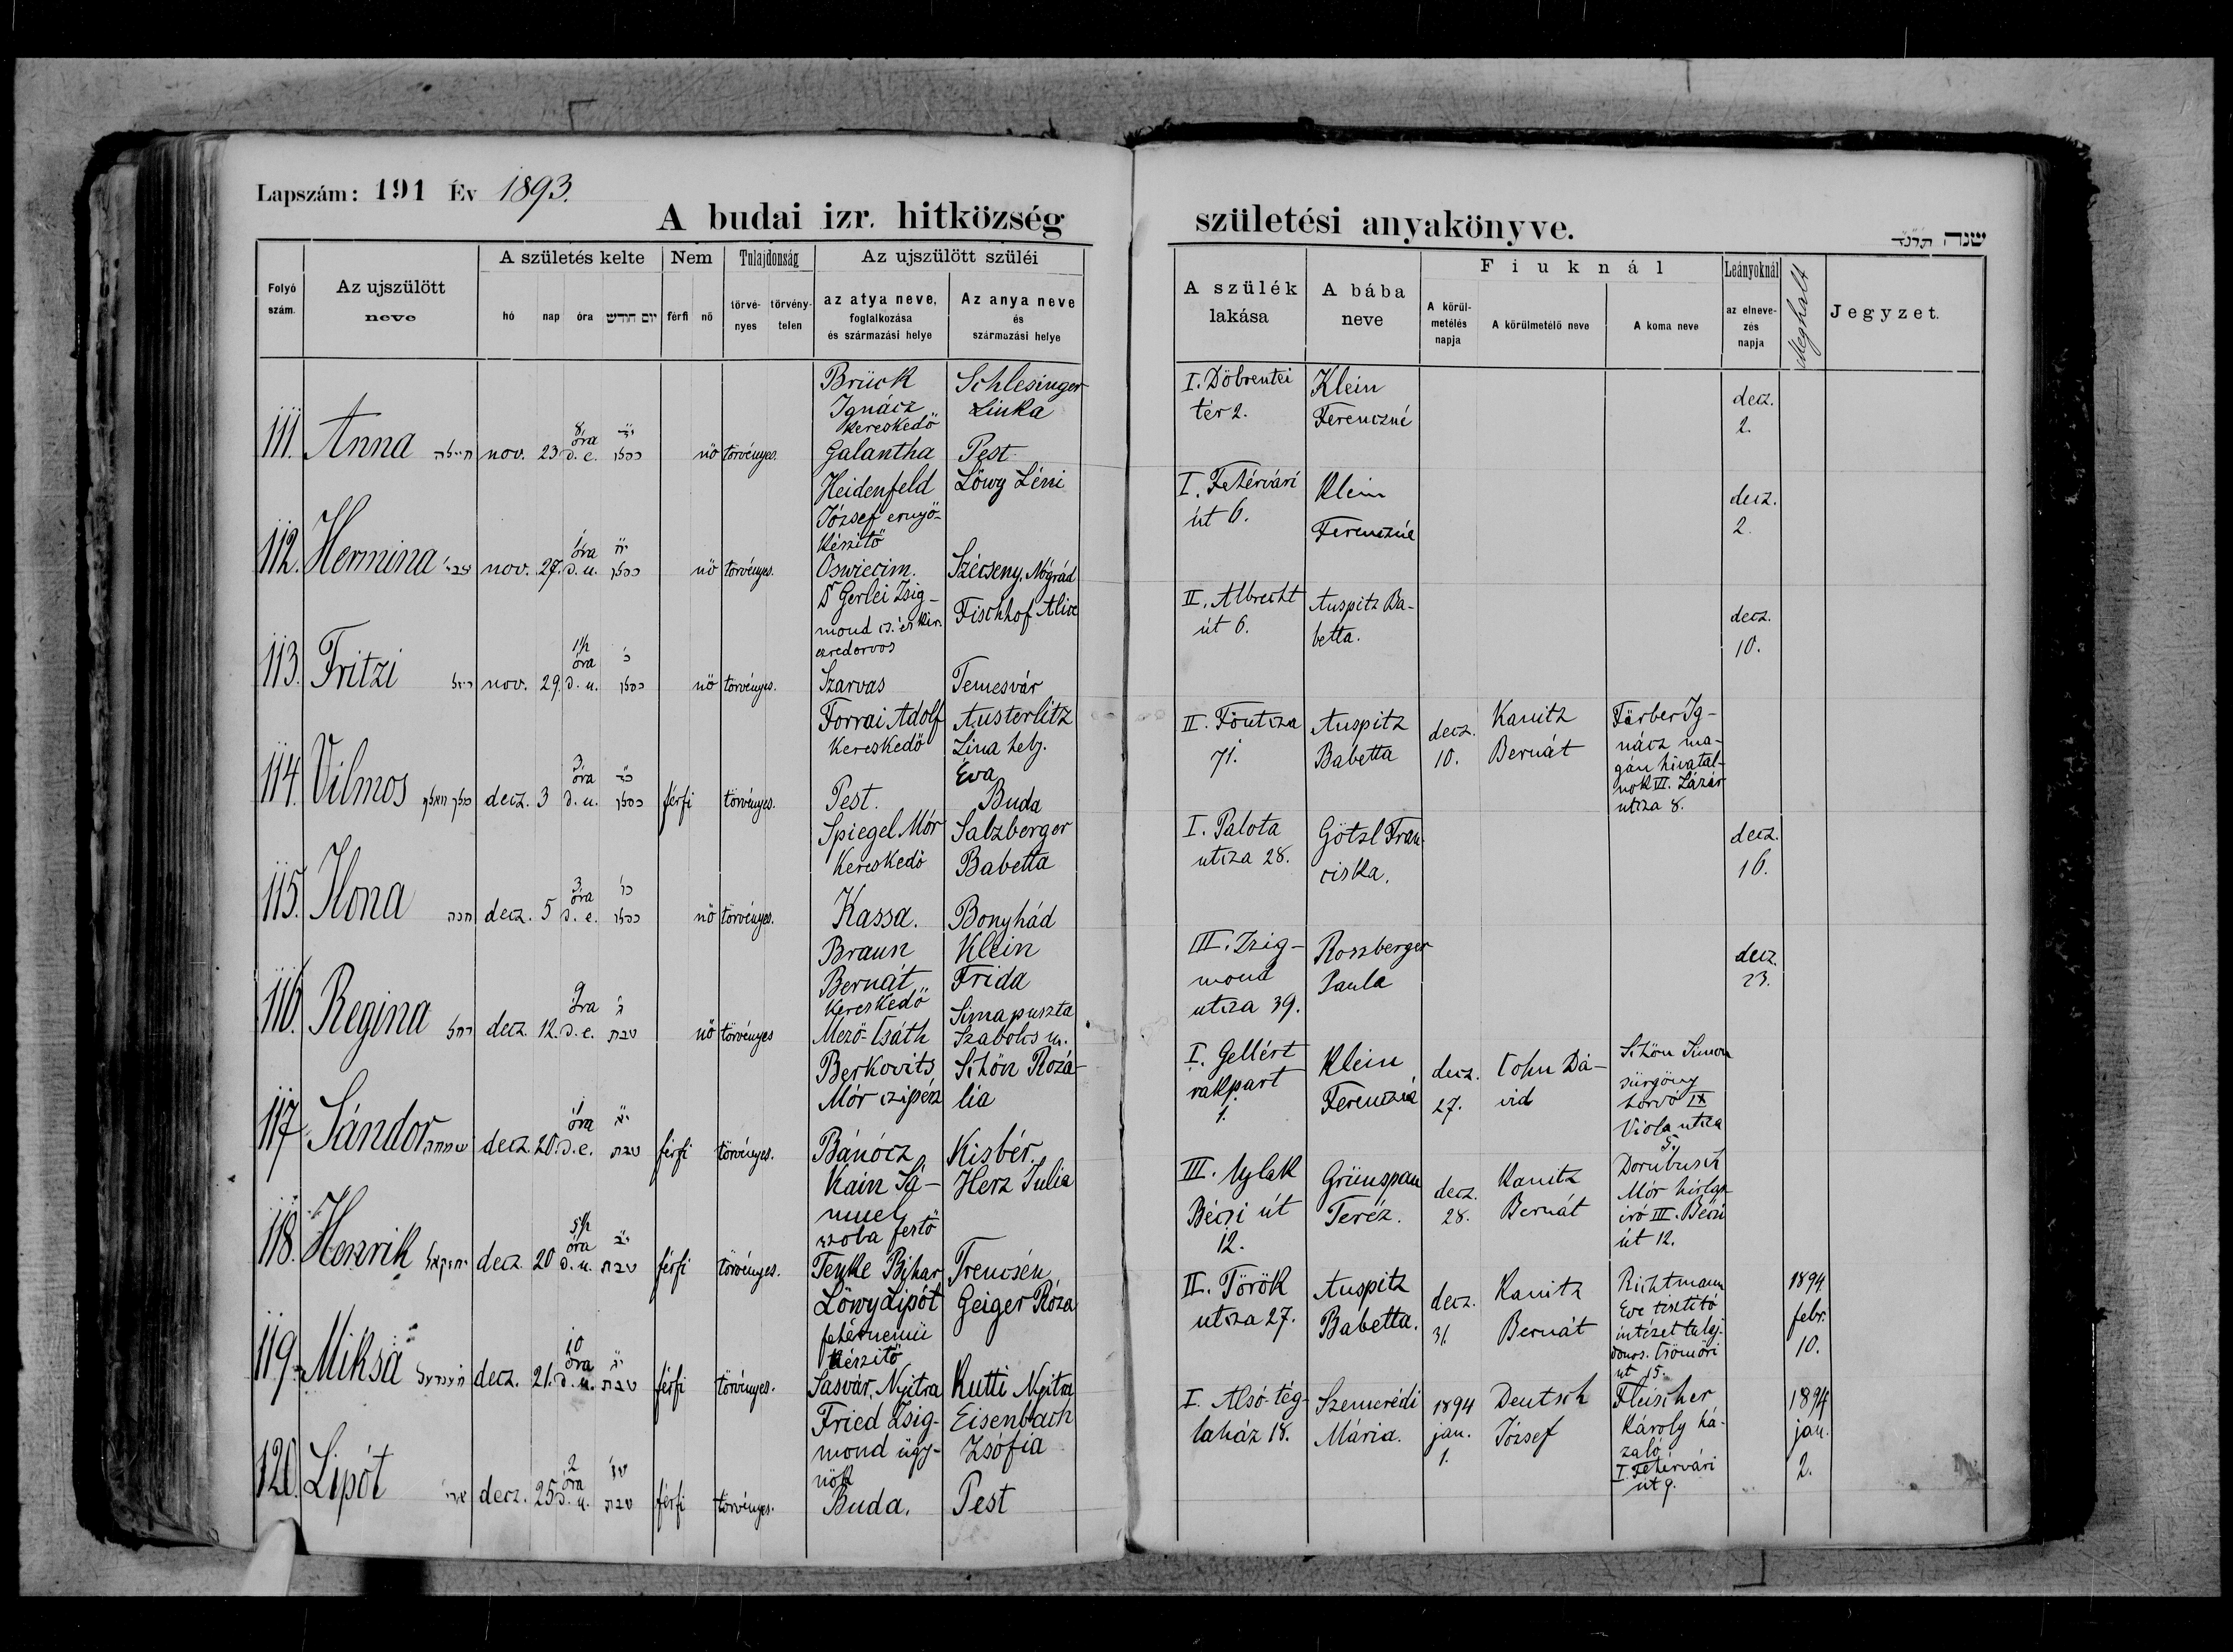 Lapszám: 191 Év 1893.
A budai izr. hitközség
születési anyakönyve.
שנה תרנ״ד
Folyó szám.
Az ujszülött neve
A születés kelte
hó nap óra יום חודש
Nem
férfi nő
Tulajdonság
törvényes törvénytelen
Az ujszülött szüléi
az atya neve, foglalkozása és származási helye
Az anya neve és származási helye
A szülék lakása
A bába neve
Fiuknál
A körülmetélés napja
A körülmetélő neve
A koma neve
Leányoknál
az elnevezés napja
Meghalt
Jegyzet.
111. Anna nov. 23 8 óra d. e. כסלו nő törvényes. Brück Ignácz kereskedő Galantha Schlesinger Linka Pest I. Döbrentei tér 2. Klein Ferenczné decz. 2.
112. Hermina nov. 27. 1 óra d. u. כסלו nő törvényes. Heidenfeld József ernyőkészitő Oswiecim. Löwy Léni Szécseny, Nógrád I. Fehérvári út 6. Klein Ferenczné decz. 2.
113. Fritzi nov. 29. óra d. u. כסלו nő törvényes. Dr Gerlei Zsigmond cs. és kir. ezredorvos Szarvas Fischhof Alice Temesvár II. Albrecht út 6. Auspitz Babetta. decz. 10.
114. Vilmos decz. 3 3 óra d. u. כסלו férfi törvényes. Forrai Adolf kereskedő Pest. Austerlitz Lina helj. Éva Buda II. Föutcza 71. Auspitz Babetta decz. 10. Kanitz Bernát Färber Ignácz magán hivatalnok VII. Lázár utcza 8.
115. Ilona חנה decz. 5 3 óra d. e. כסלו nő törvényes. Spiegel Mór kereskedő Kassa. Salzberger Babetta Bonyhád I. Palota utcza 28. Götzl Franciska. decz. 16.
116. Regina רחל decz. 12. 9 óra d. e. טבת nő törvényes Braun Bernát kereskedő Mező-Csáth Klein Frida Simapuszta Szabolcs m. III. Zsigmond utcza 39. Roszberger Paula decz. 23.
117 Sándor שמחה decz. 20. 1 óra d. e. טבת férfi törvényes. Berkovits Mór czipész Bánócz Schön Rozália Kisbér. I. Gellért rakpart 1. Klein Ferenczné decz. 27. Cohn Dávid Schön Simon sürgöny hordó IX Viola utcza 5.
118. Henrik יחזקאל decz. 20 óra d. u. טבת férfi törvényes. Kain Sámuel szoba festő Tenke Bihar Herz Julia Trencsén III. Ujlak Bécsi út 12. Grünspan Teréz. decz. 28. Kanitz Bernát Dornbusch Mór hirlapiró III. Bécsi út 12.
119. Miksa decz. 21. 10 óra d. u. טבת férfi törvényes. Löwy Lipót fehérnemü készitő Sasvár, Nyitra Geiger Róza Kutti Nyitra II. Török utcza 27. Auspitz Babetta. decz. 31. Kanitz Bernát Richtmann tisztitó intézet tulajdonos. Csömöri út 15. 1894 febr. 10.
120. Lipót decz. 25 2 óra d. u. טבת férfi törvényes. Fried Zsigmond ügynök Buda. Eisenbach Zsófia Pest I. Alsó-téglaház 18. Szemerédi Mária. 1894 jan. 1. Deutsch József Fleischer Károly házaló I. Fehérvári út 9. 1894 jan. 2.